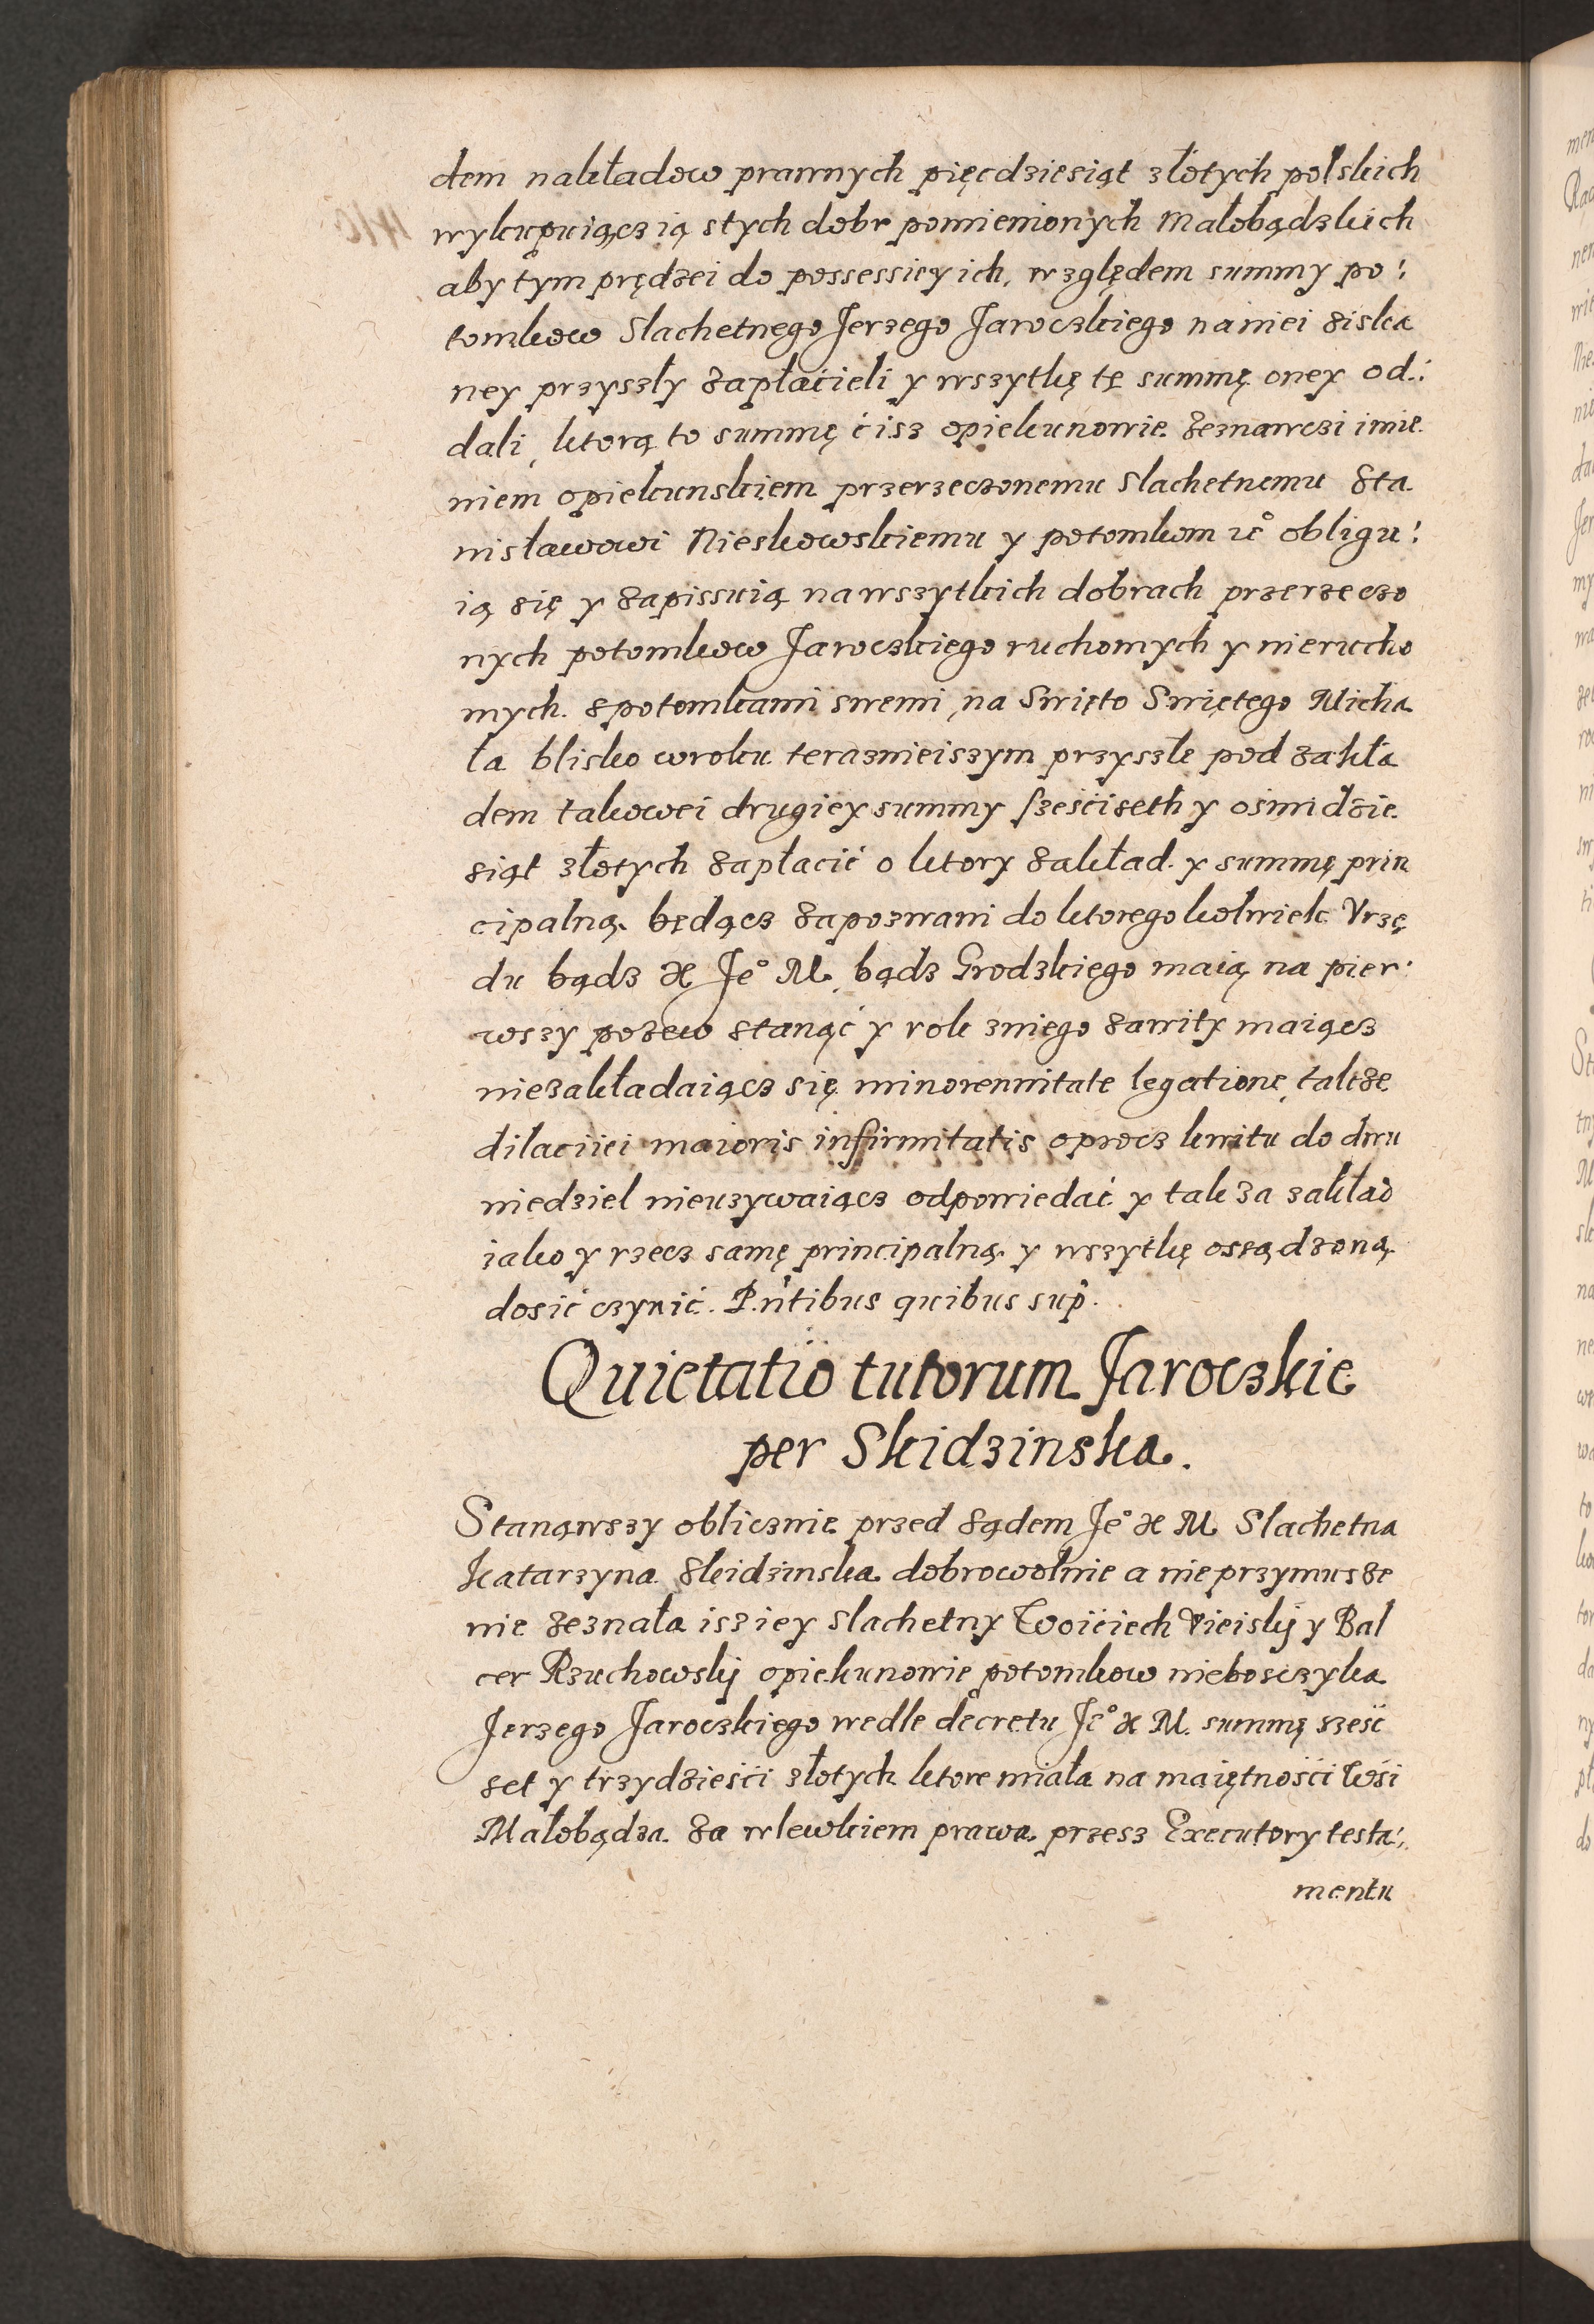 dem nakładow prawnych pięcdziesiąt złotych polskich
wykupuiącz ią stych dobr pomienionych Małobądzkich
aby tym prędzei do possessiey ich, względem summy po:
tomkow Slachetnego Jerzego Jaroczkiego na niei ziska
ney przyszły zapłacieli y wszytkę tę summę oney od:
dali, ktorą to summę ćisz opiekunowie zeznawczi imie
niem opiekunskiem przerzeczonemu Slachetnemu Sta
nisławowi Nieskowskiemu y potomkom ie° obligu:
ią się y zapissuią na wszytkich dobrach przerzeczo
nych potomkow Jaroczkiego ruchomych y nierucho
mych. s potomkami swemi, na Swięto Swiętego Micha
ła blisko wroku teraznieiszym przyszłe pod zakła
dem takowei drugiey summy sześćiseth y ośmidzie
siąt złotych zapłacić o ktory zakład y summę prin
cipalną będącz zapozwani do ktorego kolwiek Vrzę
du bądz X Je° M. bądz Grodzkięgo maią na pier:
wszy pozew stanąć y rok zniego zawity maiącz
niezakładaiącz się minorennitate legationę, takze
dilaciiei maioris infirmitatis oprocz kwitu do dwu
niedziel nieuzywaiącz odpowiedać y tak za zakład
iako y rzecz samę principalną y wszytkę osządzoną
dosić czynić. P.ntibus quibus sup.
Quietatio tutorum Jaroczkie
per Skidzinska.
Stanąwszy oblicznie przed sądem Je° X M Slachetna
Katarzyna Skidzinska dobrowolnie a nieprzymusze
nie zeznała isz iey slachetny Woićiech Vieiskij y Bal
cer Rzuchowskij opiekunowie potomkow nieboszczyka
Jerzego Jaroczkięgo wedle decretu Je° X M. summę szesć
set y trzydzieśći złotych ktore miała na maiętnośći Wśi
Małobądza za wlewkiem prawa przesz Executory testa:
mentu